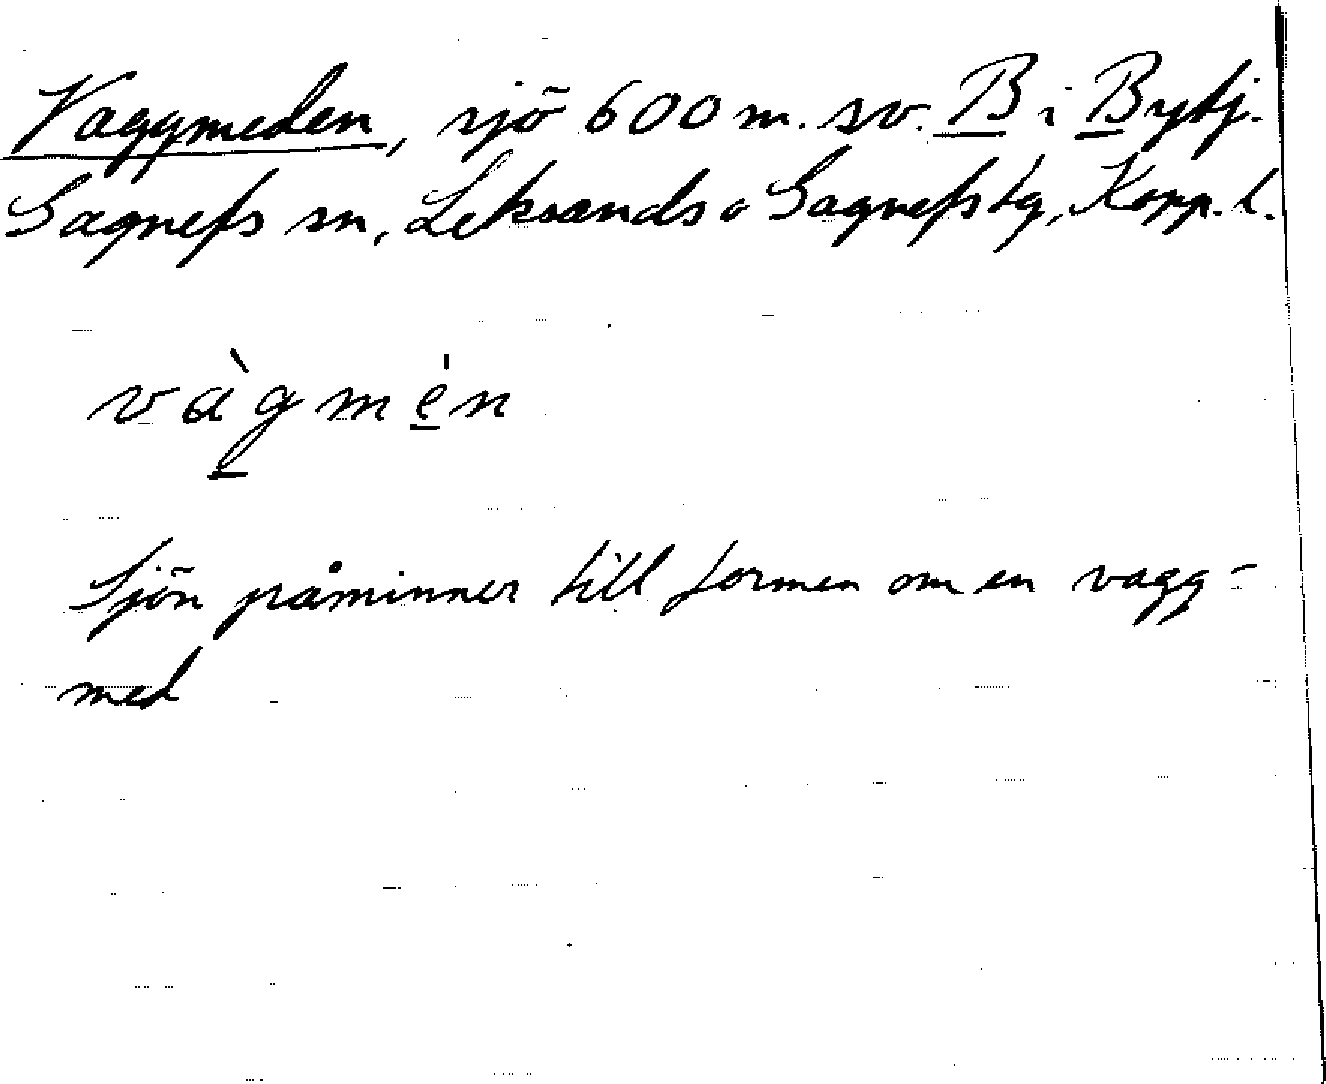 Vaggmeden, sjö 600 m. sv. B i Bytj.
Gagnefs sn, Leksands o Gagnefs tg, Kopp. l.
vàgmèn
Sjön påminner till formen om en vagg-
med